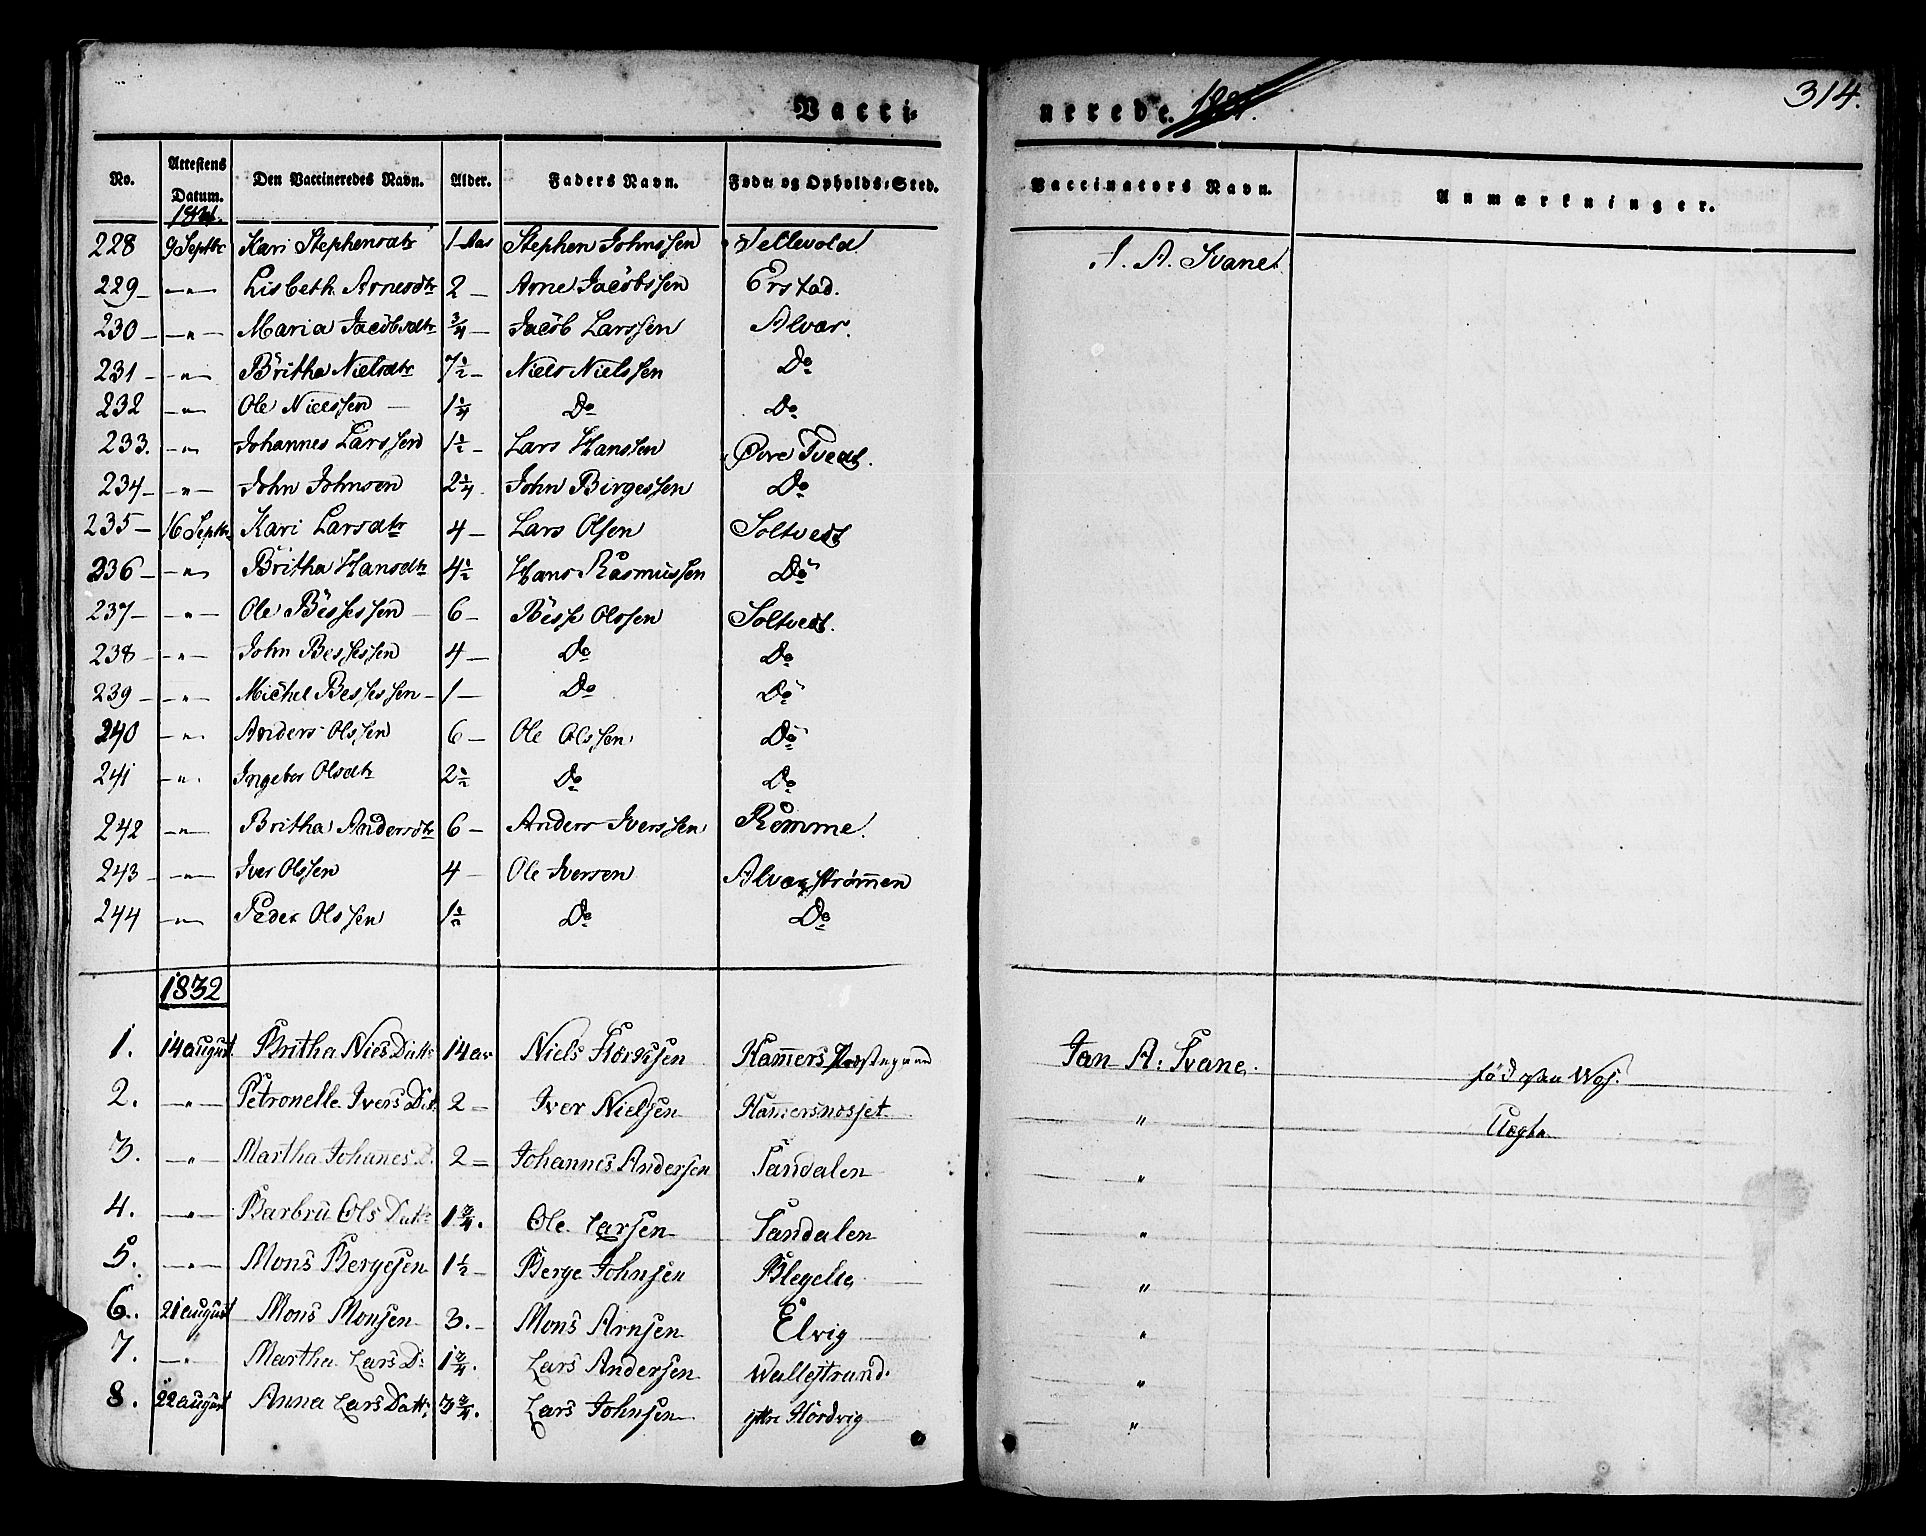 Vacci- nerede. 314.
No. Attestens Datum. Den Vaccineredes Navn. Alder. Faders Navn. Føde- og Opholds-Sted. Vaccinators Navn. Anmærkninger.
228 9 Septbr Kari Stephensdtr 1 Aar Stephen Johnssen Tellevold. A. Tvane
229 — " — Lisbeth Arnesdtr 2 — Arne Jacobssen Erstad.
230 — " — Maria Jacobsdtr 3/4 — Jacob Larssen Alvær.
231 — " — Britha Nielsdtr 7 1/2 — Niels Nielssen Do
232 — " — Ole Nielssen — 1 1/4 Do Do
233. — " — Johannes Larssen 1 1/2 — Lars Hanssen Øvre Tvedt.
234 — " — John Johnsen 2 1/4. John Birgessen Do
235 — 16 Septbr Kari Larsdtr 4 — Lars Olsen Soltvedt
236 — " — Britha Hansdtr 4 1/2 Hans Rasmussen Do
237 — " — Ole Bessessen — 6 — Besse Olssen Soltvedt.
238 — " — John Bessessen 4 — Do Do
239 — " — Michel Bessessen — 1 — Do Do
240 — " — Anders Olssen 6 — Ole Olssen Do
241 — " — Ingebor Olsdtr 2 1/2 Do Do
242 — " — Britha Andersdtr 6 — Anders Iverssen Romme.
243 — " — Iver Olssen 4 — Ole Iversen Alværstrømmen
244 — " — Peder Olssen 1 1/2 Do Do
1832
1. 14 august. Britha Niels Datt. 14 ar Niels Hammers Jan A: Tvane. fød
2. — " — Petronelle Ivers Dat. 2 = Iver Nielsen Hammersnosset. "
3. — " — Martha Johanes D. 2 = Johannes Andersen Sandalen "
4. — " — Barbru Ols Datt. 1 3/4. Ole Larsen Sandalen "
5. — " — Mons Bergesen 1 1/2 — Berge Johnsen "
6. 21 august Mons Monsen 3. — Mons Arnsen Elvig "
7. — " — Martha Lars D: 1 3/4. Lars Andersen Wallestrand. "
8. 22 august Anna Lars Datt. 3 3/4. Lars Johnsen ytre Hordvig "